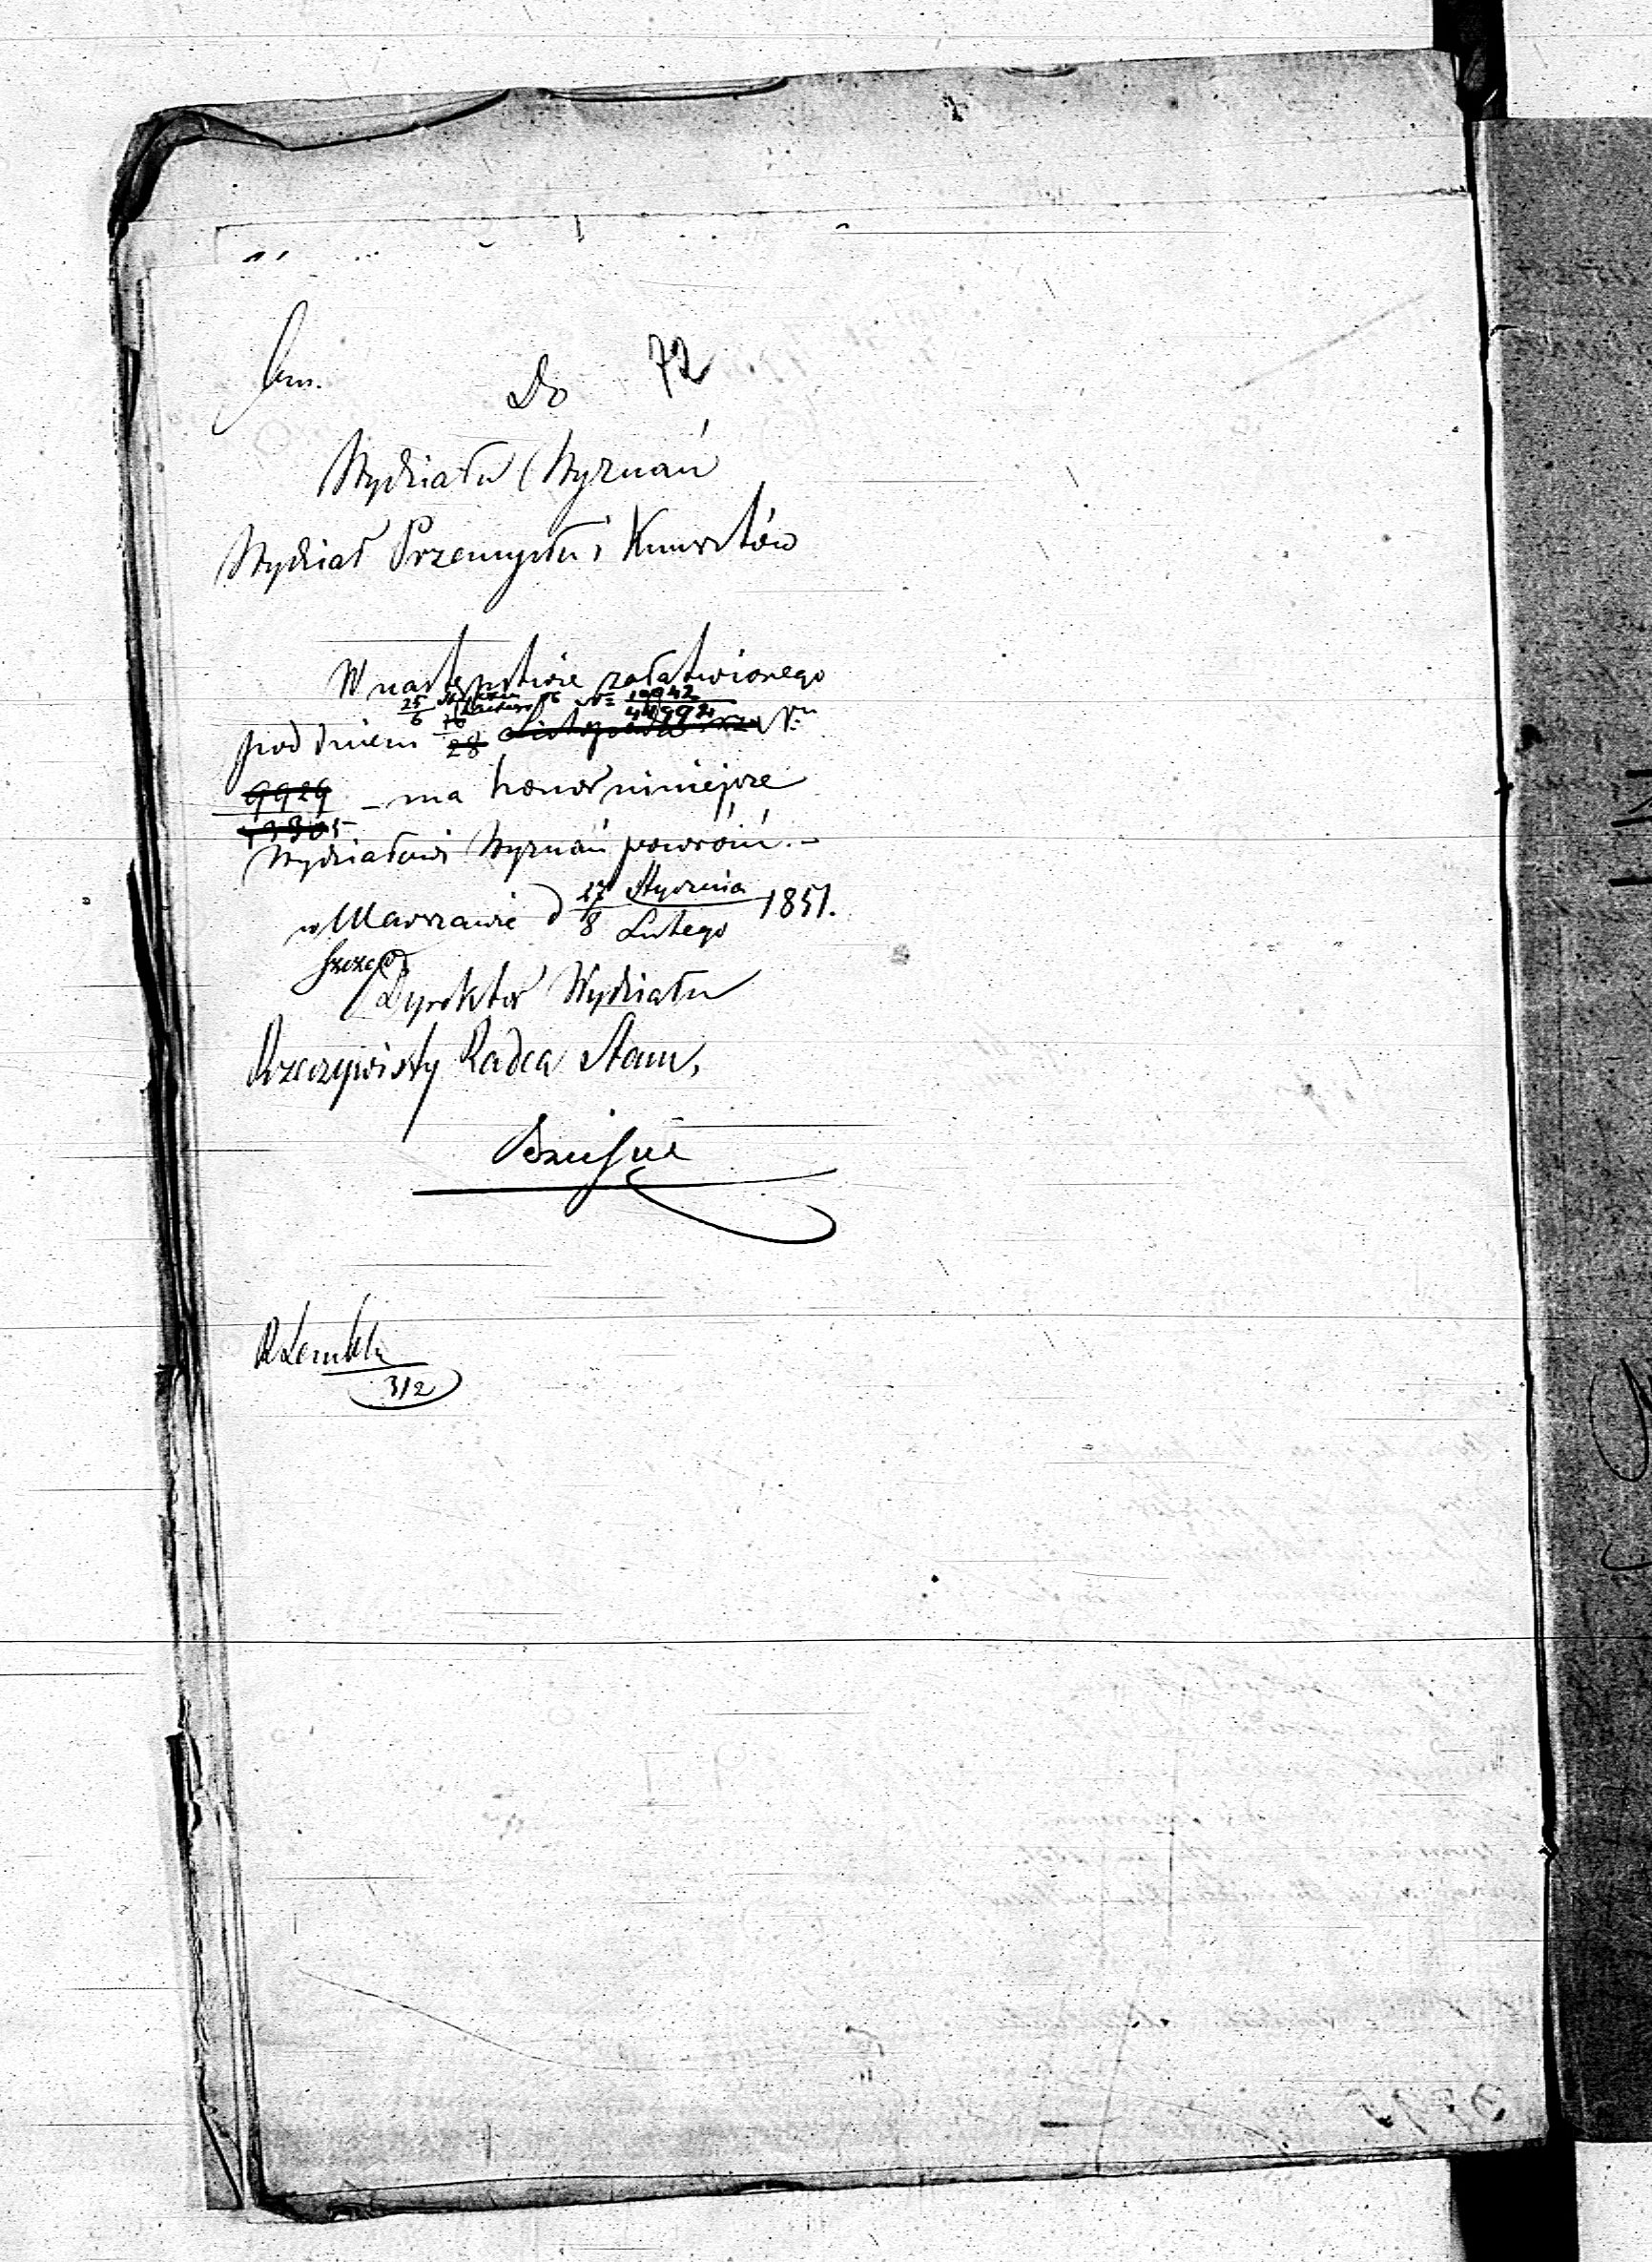 72
Do
Wydziału Wyznań
Wydział Przemysłu i Kunsztów
W następstwie załatwionego
25/6 N= 19942/44992
pod dniem 16/28 Listopada r. z. N.
9929/43905 - ma honor niniejsze
Wydziałowi Wyznań powrócić.-
w Warszawie d 27/8 Stycznia/Lutego 1851.
Dyrektor Wydziału
Rzeczywisty Radca Stanu,
3/2